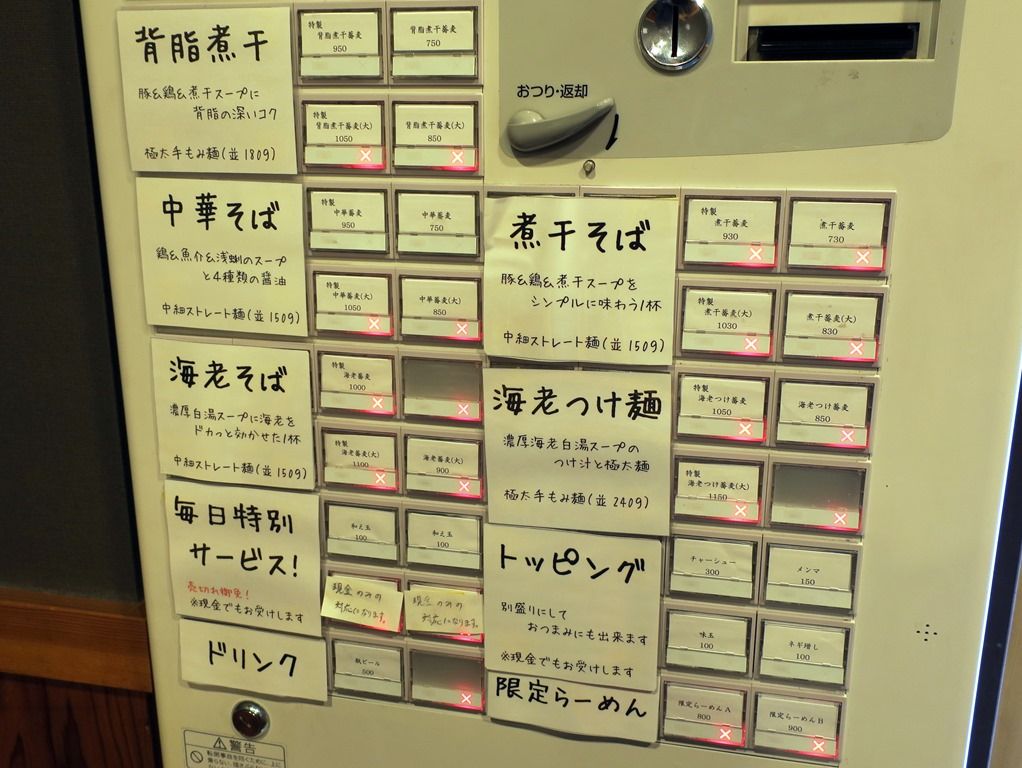 背脂煮干
豚&鶏&煮干スープに
背脂の深いコク
極太手もみ麺(並180g)
特製
背脂煮干蕎麦
950
背脂煮干蕎麦
750
特製
背脂煮干蕎麦(大)
1050
背脂煮干蕎麦(大)
850
おつり・返却
中華そば
鶏&魚介&浅蜊のスープ
と4種類の醤油
中細ストレート麺(並150g)
特製
中華蕎麦
950
中華蕎麦
750
特製
中華蕎麦(大)
1050
中華蕎麦(大)
850
海老そば
濃厚白湯スープに海老を
ドカっと効かせた1杯
中細ストレート麺(並150g)
特製
海老蕎麦
1000
特製
海老蕎麦(大)
1100
海老蕎麦(大)
900
毎日特別
サービス!
売切れ御免!
※現金でもお受けします
和え玉
100
和え玉
100
現金のみの
対応になります。
現金のみの
対応になります。
ドリンク
瓶ビール
500
煮干そば
豚&鶏&煮干スープを
シンプルに味わう1杯
中細ストレート麺(並150g)
特製
煮干蕎麦
930
煮干蕎麦
730
特製
煮干蕎麦(大)
1030
煮干蕎麦(大)
830
海老つけ麺
濃厚海老白湯スープの
つけ汁と極太麺
極太手もみ麺(並240g)
特製
海老つけ蕎麦
1050
海老つけ蕎麦
850
特製
海老つけ蕎麦(大)
1150
トッピング
別盛りにして
おつまみにも出来ます
※現金でもお受けします
チャーシュー
300
メンマ
150
味玉
100
ネギ増し
100
限定らーめん
限定らーめんA
800
限定らーめんB
900
警告
転倒事故を防ぐために、上に